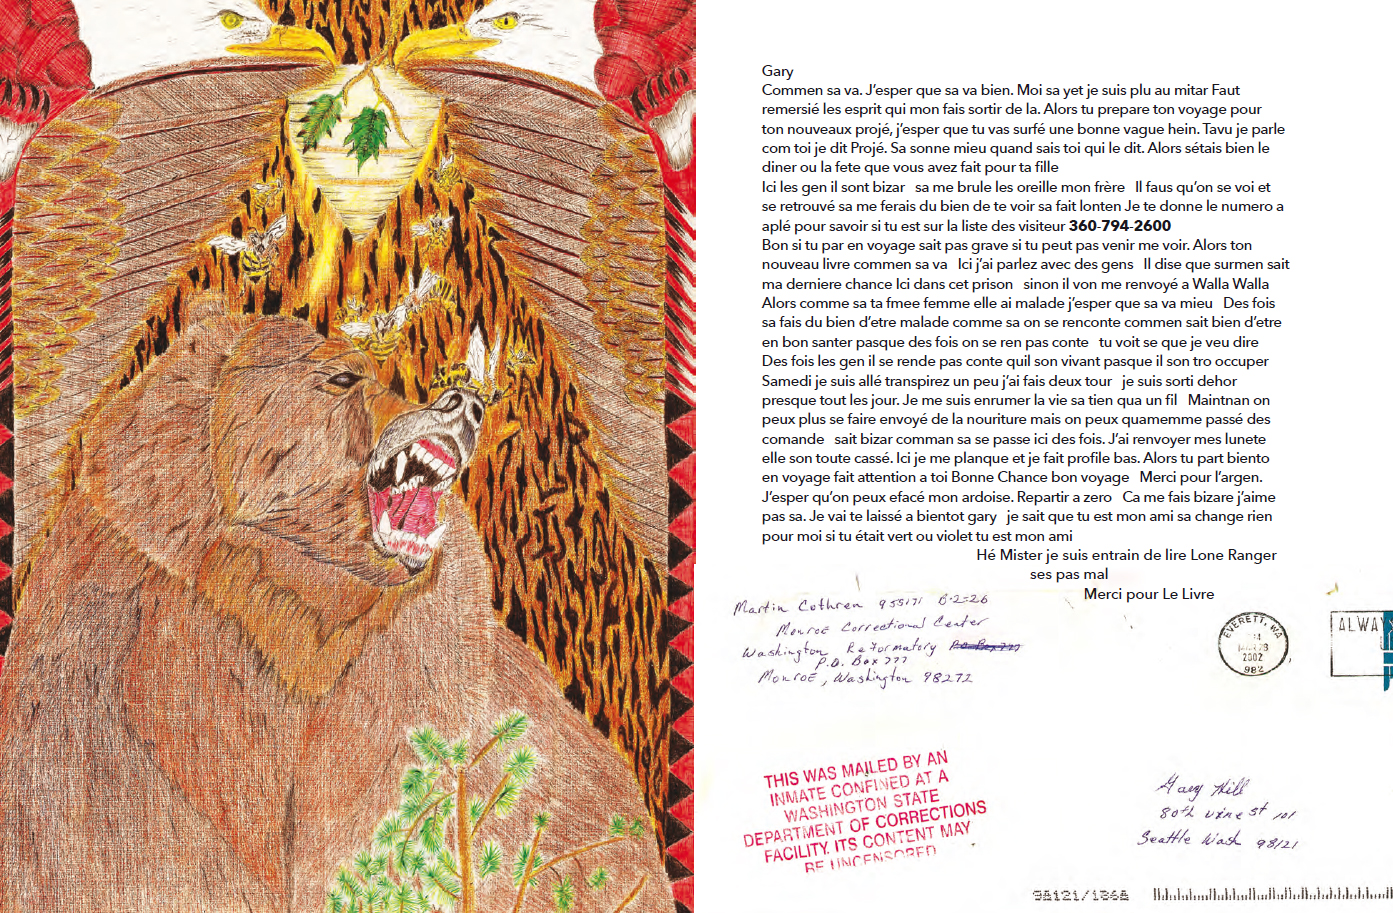 Gary
Commen sa va. J'esper que sa va bien. Moi sa yet je suis plu au mitar Faut
remersié les esprit qui mon fais sortir de la. Alors tu prepare ton voyage pour
ton nouveaux projé, j'esper que tu vas surfé une bonne vague hein. Tavu je parle
com toi je dit Projé. Sa sonne mieu quand sais toi qui le dit. Alors sétais bien le
diner ou la fete que vous avez fait pour ta fille
Ici les gen il sont bizar   sa me brule les oreille mon frère   Il faus qu'on se voi et
se retrouvé sa me ferais du bien de te voir sa fait lonten Je te donne le numero a
aplé pour savoir si tu est sur la liste des visiteur 360-794-2600
Bon si tu par en voyage sait pas grave si tu peut pas venir me voir. Alors ton
nouveau livre commen sa va   Ici j'ai parlez avec des gens   Il dise que surmen sait
ma derniere chance Ici dans cet prison   sinon il von me renvoyé a Walla Walla
Alors comme sa ta fmee femme elle ai malade j'esper que sa va mieu   Des fois
sa fais du bien d'etre malade comme sa on se renconte commen sait bien d'etre
en bon santer pasque des fois on se ren pas conte   tu voit se que je veu dire
Des fois les gen il se rende pas conte quil son vivant pasque il son tro occuper
Samedi je suis allé transpirez un peu j'ai fais deux tour   je suis sorti dehor
presque tout les jour. Je me suis enrumer la vie sa tien qua un fil   Maintnan on
peux plus se faire envoyé de la nouriture mais on peux quamemme passé des
comande   sait bizar comman sa se passe ici des fois. J'ai renvoyer mes lunete
elle son toute cassé. Ici je me planque et je fait profile bas. Alors tu part biento
en voyage fait attention a toi Bonne Chance bon voyage   Merci pour l'argen.
J'esper qu'on peux efacé mon ardoise. Repartir a zero   Ca me fais bizare j'aime
pas sa. Je vai te laissé a bientot gary   je sait que tu est mon ami sa change rien
pour moi si tu était vert ou violet tu est mon ami
Hé Mister je suis entrain de lire Lone Ranger
ses pas mal
Merci pour Le Livre
Martin Cothren 955171 B-2-26
Monroe Correctional Center
Washington Reformatory P.O. Box 777
P.O. Box 777
Monroe, Washington 98272
EVERETT, WA
2002
982
ALWA
THIS WAS MAILED BY AN
INMATE CONFINED AT A
WASHINGTON STATE
DEPARTMENT OF CORRECTIONS
FACILITY. ITS CONTENT MAY
BE UNCENSORED
Gary Hill
80th vine st 101
Seattle Wash 98121
98121/1368